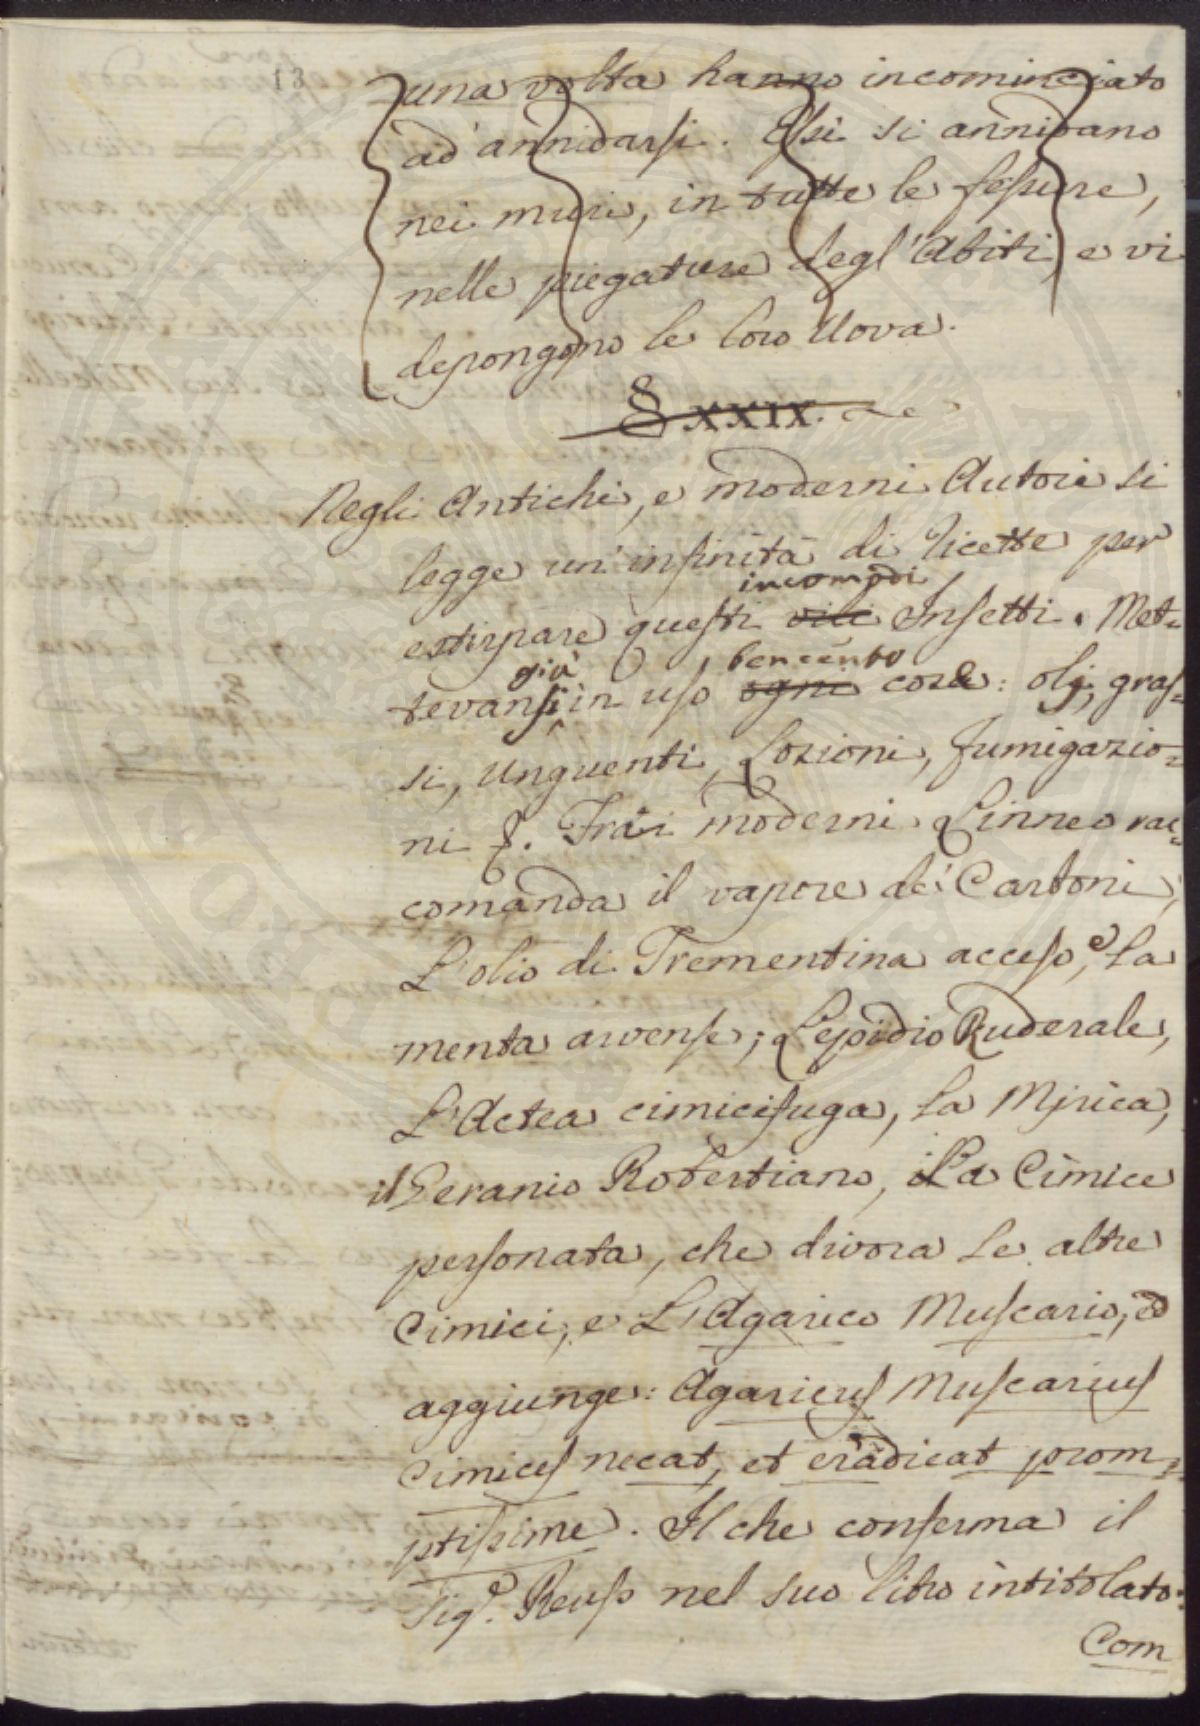 13
una volta hanno incominciato
ad' annidarsi. Essi si annidano
nei muri, in tutte le fessure,
nelle piegature degl'Abiti, e vi
depongono le loro Uova.
§ XXIX.
Negli Antichi, e moderni Autori si
legge un' infinità di ricette per
incomodi
estirpare questi vili Insetti. Met=
già bencento
tevansi in uso ogni cose: olj, gras=
si, Unguenti, Lozioni, fumigazio=
ni &. Frai moderni Linneo rac=
comanda il vapore de' Carboni,
L'olio di Trementina acceso, e La
menta arvense; Lepidio Ruderale,
L'Actea cimicifuga, La Mirica,
il Geranio Robertiano, La Cimice
personata, che divora Le altre
Cimici, e L'Agarico Muscario, ed
aggiunge: Agaricus Muscarius
Cimices necat, et eradicat prom=
ptissime. Il che conferma il
Sigr. Reuss nel suo libro intitolato:
Com